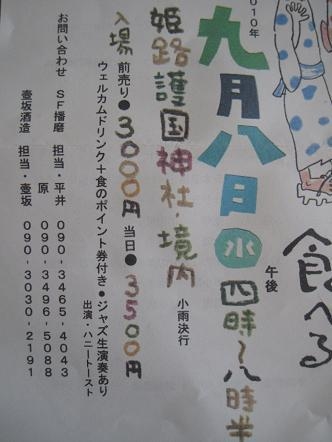 2010年
九月八日㊌四時〜八時半
午後
食べる
姫路護国神社・境内
小雨決行
入場 前売り●3000円 当日●3500円
ウェルカムドリンク＋食のポイント券付き●ジャズ生演奏あり
出演・ハニートースト
お問い合わせ SF播磨 担当・平井 090-3465-4043
原 090-3496-5088
壺坂酒造 担当・壺坂 090-3030-2191